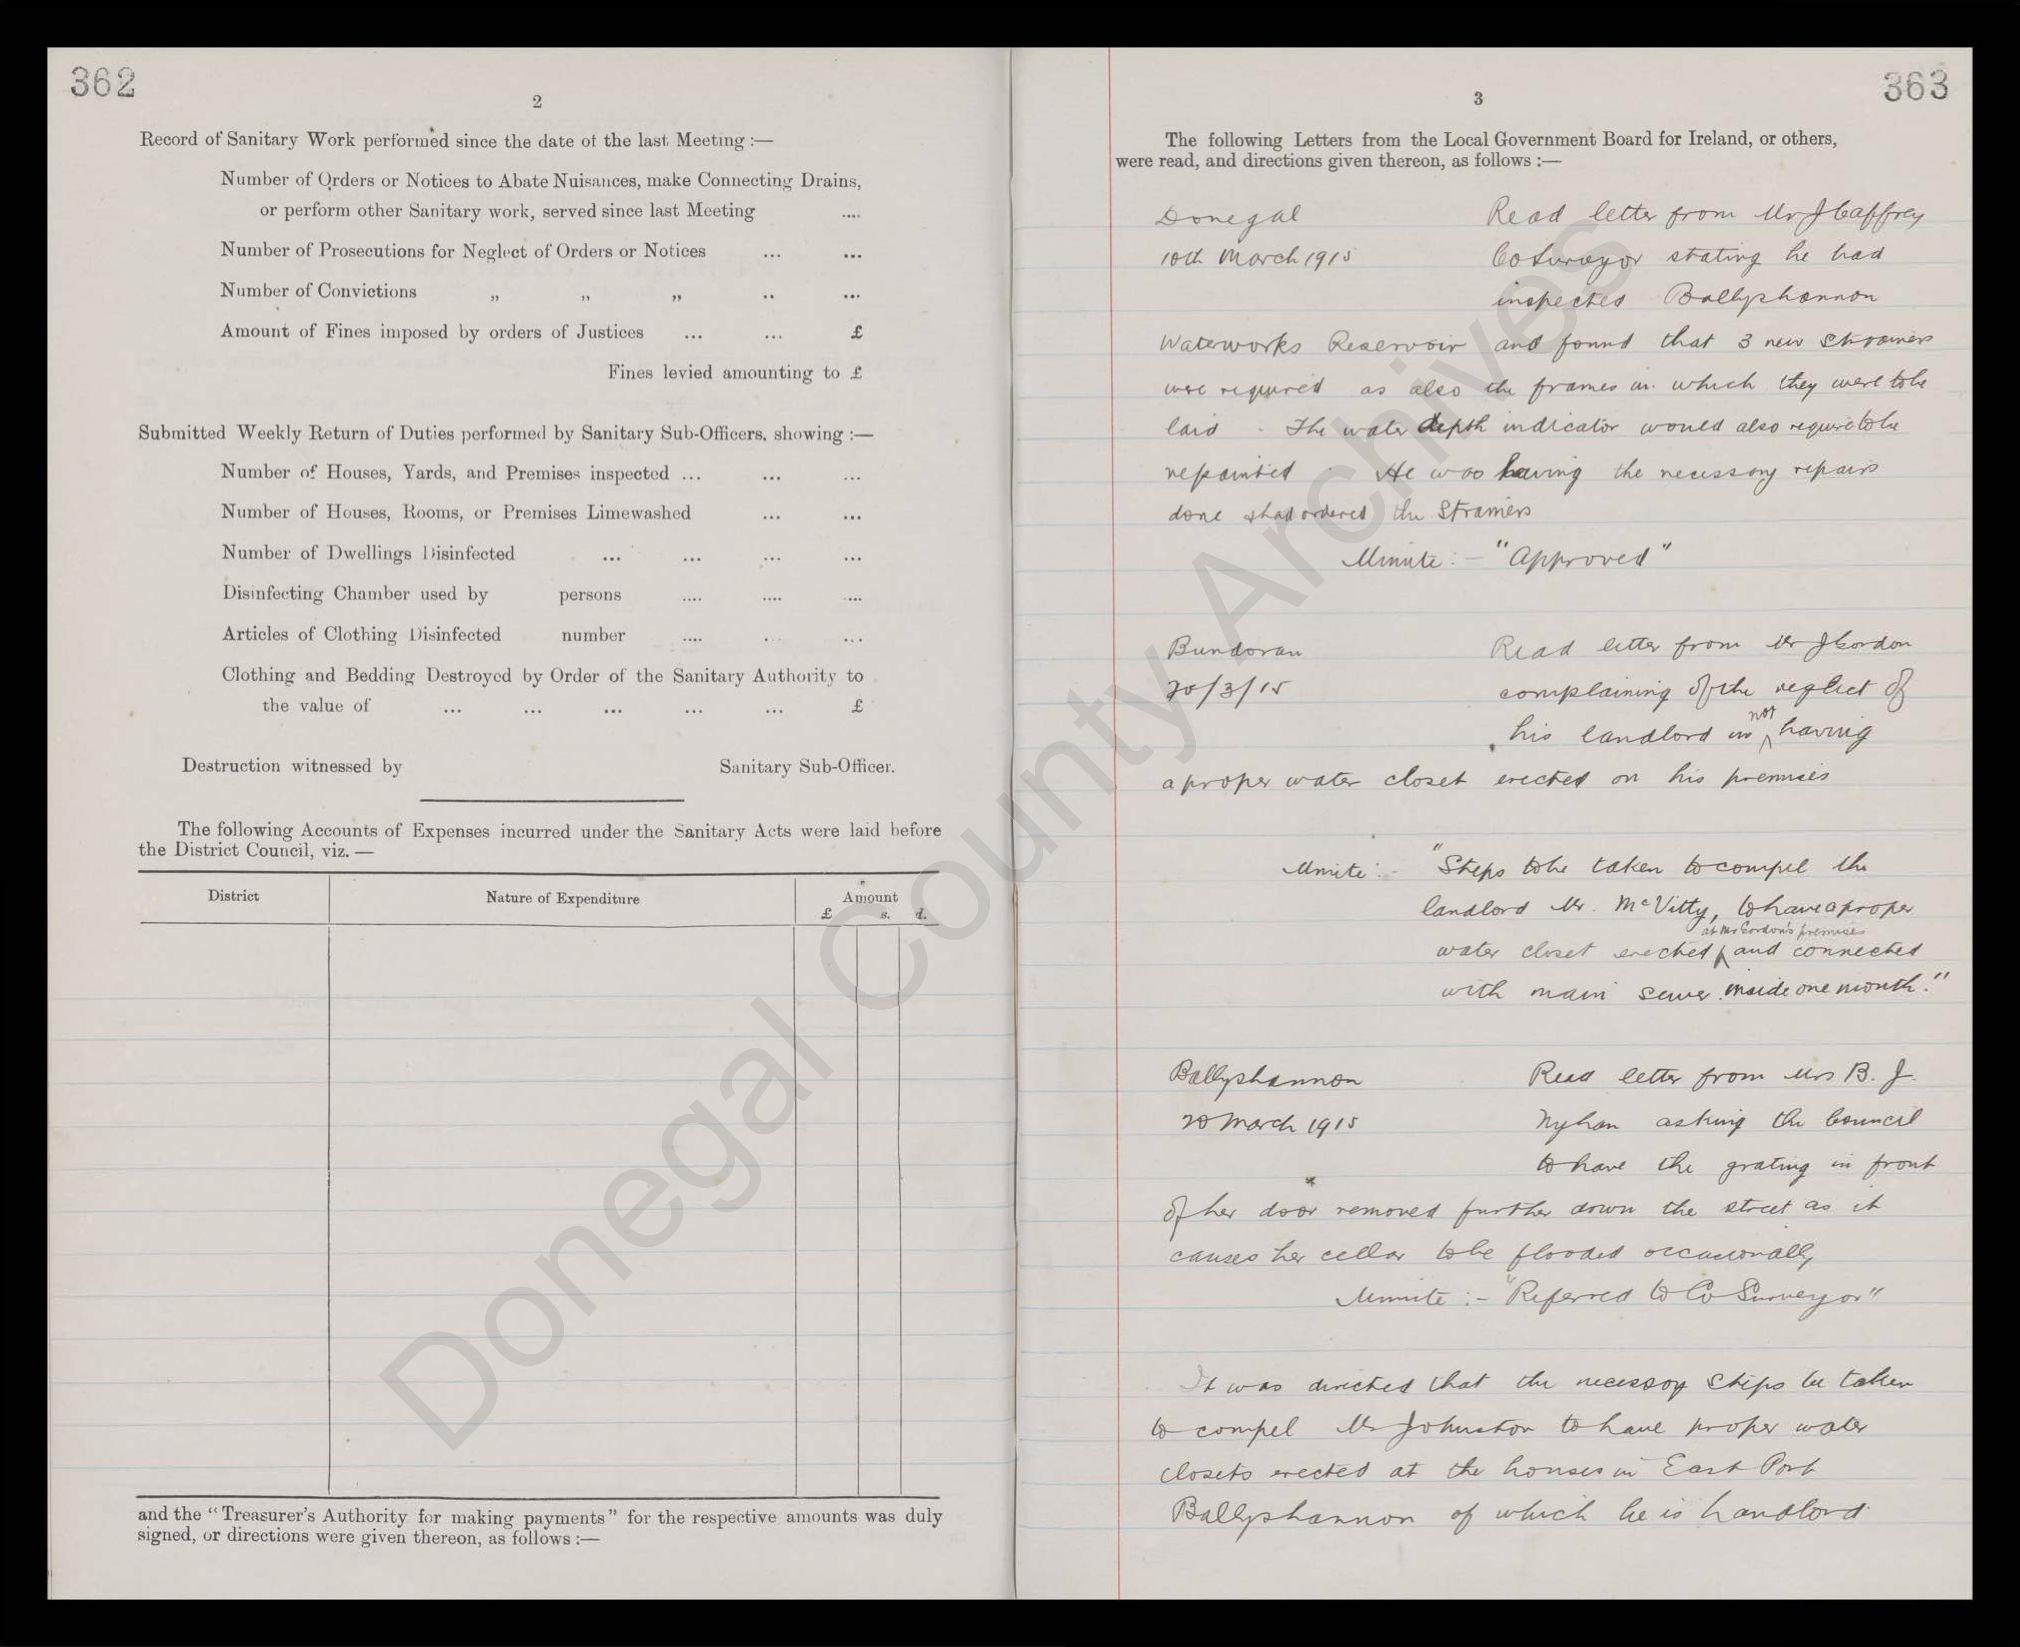 362
2
Record of Sanitary Work performed since the date of the last Meeting :—
Number of Orders or Notices to Abate Nuisances, make Connecting Drains,
or perform other Sanitary work, served since last Meeting ....
Number of Prosecutions for Neglect of Orders or Notices ... ...
Number of Convictions „ „ „ .. ...
Amount of Fines imposed by orders of Justices ... ... £
Fines levied amounting to £
Submitted Weekly Return of Duties performed by Sanitary Sub-Officers, showing :—
Number of Houses, Yards, and Premises inspected ... ... ...
Number of Houses, Rooms, or Premises Limewashed ... ...
Number of Dwellings Disinfected ... ... ... ...
Disinfecting Chamber used by persons .... .... ....
Articles of Clothing Disinfected number .... ... ...
Clothing and Bedding Destroyed by Order of the Sanitary Authority to
the value of ... ... ... ... ... £
Destruction witnessed by Sanitary Sub-Officer.
The following Accounts of Expenses incurred under the Sanitary Acts were laid before
the District Council, viz. —
District Nature of Expenditure Amount
£ s. d.
and the “Treasurer's Authority for making payments” for the respective amounts was duly
signed, or directions were given thereon, as follows :—
363
3
The following Letters from the Local Government Board for Ireland, or others,
were read, and directions given thereon, as follows :—
Donegal Read letter from Mr J Caffrey
10th March 1915 Co Surveyor stating he had
inspected Ballyshannon
Waterworks Reservoir and found that 3 new Strainers
were required as also the frames in which they were to be
laid. The water depth indicator would also require to be
repainted. He was having the necessary repairs
done & had ordered the Strainers
Minute :- "Approved"
Bundoran Read letter from Mr J Gordon
20/3/15 complaining of the neglect of
his landlord in not having
a proper water closet erected on his premises
Minute :- "Steps to be taken to compel the
landlord Mr. McVitty, to have a proper
water closet erected at Mr Gordon's premises and connected
with main sewer inside one month."
Ballyshannon Read letter from Mrs B. J.
20 March 1915 Nyhan asking the Council
to have the grating in front
of her door removed further down the street as it
causes her cellar to be flooded occasionally
Minute :- "Referred to Co Surveyor"
It was directed that the necessary Steps be taken
to compel Mr Johnston to have proper water
closets erected at the houses in East Port
Ballyshannon of which he is landlord
Donegal County Archives